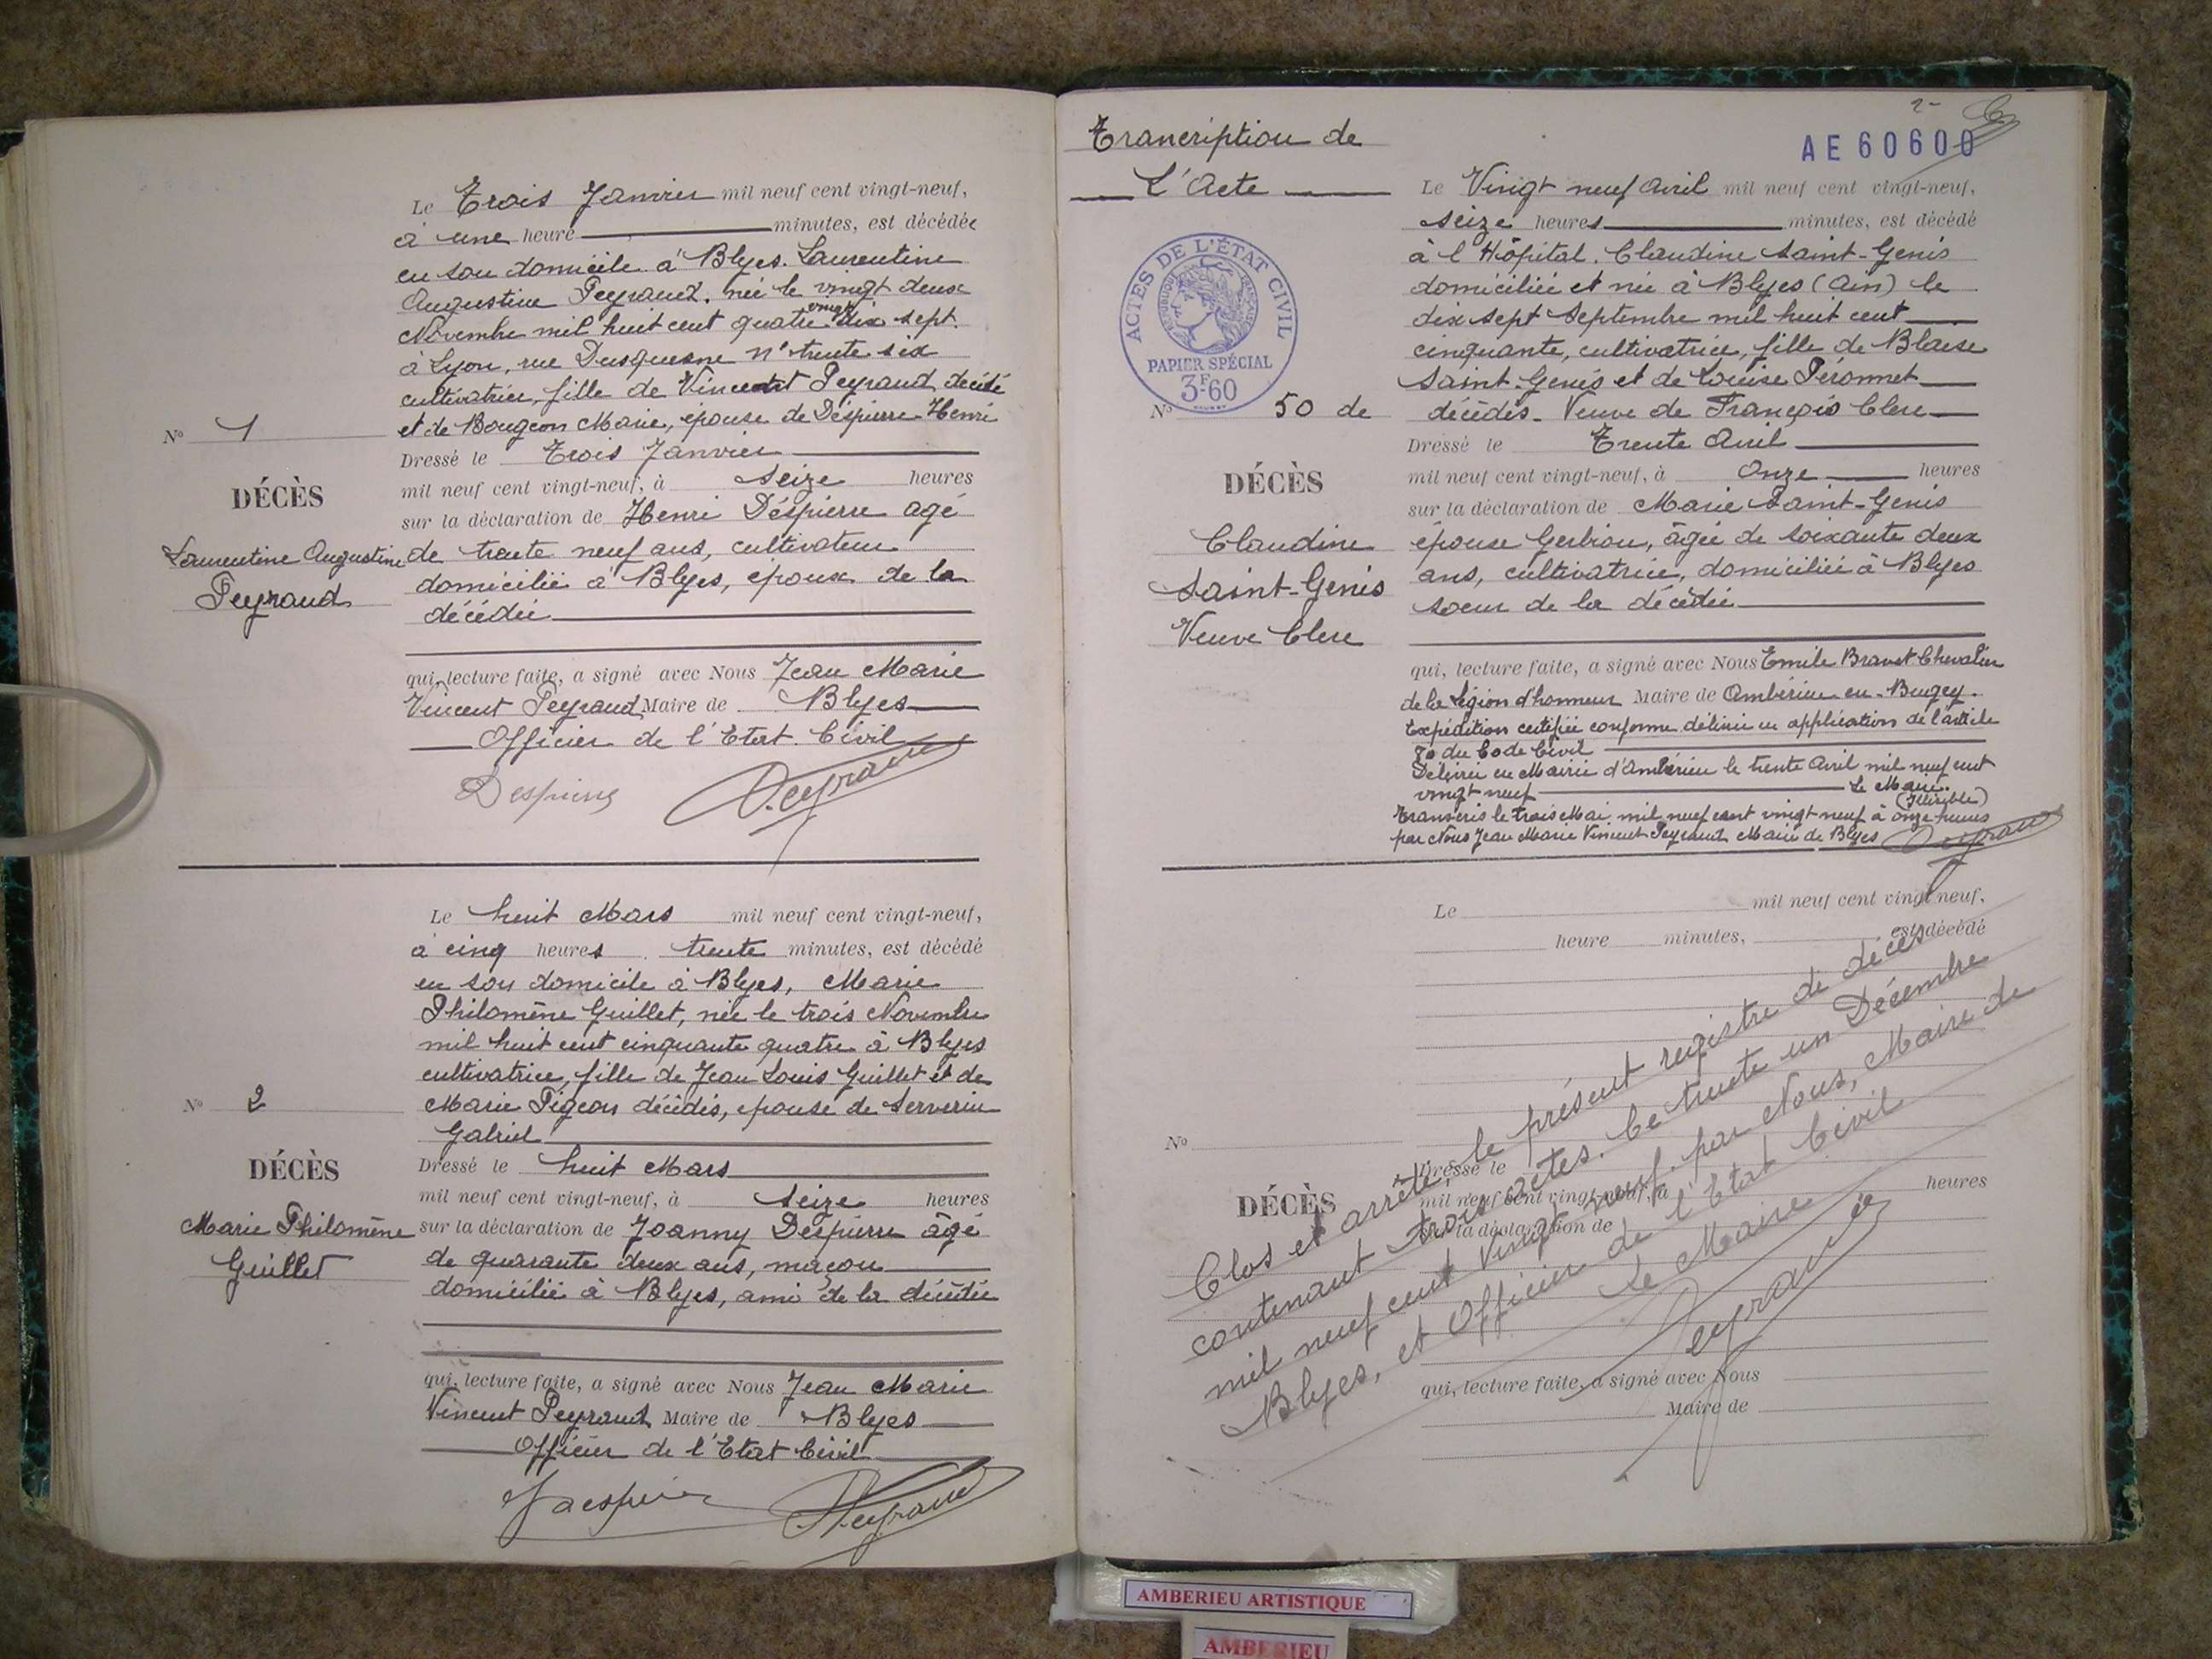 Le Trois Janvier mil neuf cent vingt-neuf,
à une heure minutes, est décédée
en son domicile à Blyes. Laurentine
Augustine Peyraud, née le vingt deux
Novembre mil huit cent quatre vingt dix sept.
à Lyon, rue Dusquesne n° trente six
cultivatrice, fille de Vincent Peyraud décédé
et de Bougeon Marie, epouse de Déspierre Henri
N° 1
Dressé le Trois Janvier
mil neuf cent vingt-neuf, à Seize heures
DÉCÈS
sur la déclaration de Henri Déspierre agé
Laurentine Augustine
Peyraud
de trente neuf ans, cultivateur
domicilié à Blyes, epoux de la
décédée
qui, lecture faite, a signé avec Nous Jean Marie
Vincent Peyraud Maire de Blyes
Officier de l'Etat Civil
Despierre Peyraud
Le huit Mars mil neuf cent vingt-neuf,
à cinq heures trente minutes, est décédé
en son domicile à Blyes, Marie
Philomène Guillet, née le trois Novembre
mil huit cent cinquante quatre à Blyes
cultivatrice, fille de Jean Louis Guillet et de
Marie Pigeon décédés, epouse de Serverin
Gabriel
N° 2
Dressé le huit Mars
DÉCÈS
mil neuf cent vingt-neuf, à Seize heures
Marie Philomène
Guillet
sur la déclaration de Joanny Despierre âgé
de quarante deux ans, maçon
domicilié à Blyes, ami de la décédée
qui, lecture faite, a signé avec Nous Jean Marie
Vincent Peyraud Maire de Blyes
Officier de l'Etat Civil
Peyraud
2
AE 60600
Trancription de
L'Acte
ACTES DE L'ÉTAT CIVIL
RÉPUBLIQUE FRANÇAISE
PAPIER SPÉCIAL
3F.60
N° 50 de
DÉCÈS
Claudine
Saint-Genis
Veuve Clerc
Le Vingt neuf Avril mil neuf cent vingt-neuf,
seize heures minutes, est décédé
à l'Hôpital. Claudine Saint-Genis
domiciliée et née à Blyes (Ain) le
dix sept Septembre mil huit cent
cinquante, cultivatrice, fille de Blaise
Saint-Genis et de Louise Péronnet
décédés. Veuve de François Clerc
Dressé le Trente Avril
mil neuf cent vingt-neuf, à Onze heures
sur la déclaration de Marie Saint-Genis
épouse Gerbiou, âgée de soixante deux
ans, cultivatrice, domiciliée à Blyes
soeur de la décédée
qui, lecture faite, a signé avec Nous Emile Bravet Chevalier
de la Légion d'honneur Maire de Ambérieu-en-Bugey.
Expédition certifiée conforme délivrée en application de l'article
80 du Code Civil
Délivré en Mairie d'Ambérieu le trente Avril mil neuf cent
vingt neuf Le Maire.
(Illisible)
Transcris le trois Mai mil neuf cent vingt neuf à onze heures
par Nous Jean Marie Vincent Peyraud Maire de Blyes Peyraud
Le mil neuf cent vingt-neuf,
heure minutes, est décédé
N°
DÉCÈS
Dressé le
mil neuf cent vingt-neuf, à heures
sur la déclaration de
qui, lecture faite, a signé avec Nous
Maire de
Clos et arrêté, le présent registre de décès
contenant trois actes. Ce trente un Décembre
mil neuf cent vingt neuf. par Nous, Maire de
Blyes, et Officier de l'Etat Civil
Le Maire
Peyraud
AMBERIEU ARTISTIQUE
AMBERIEU